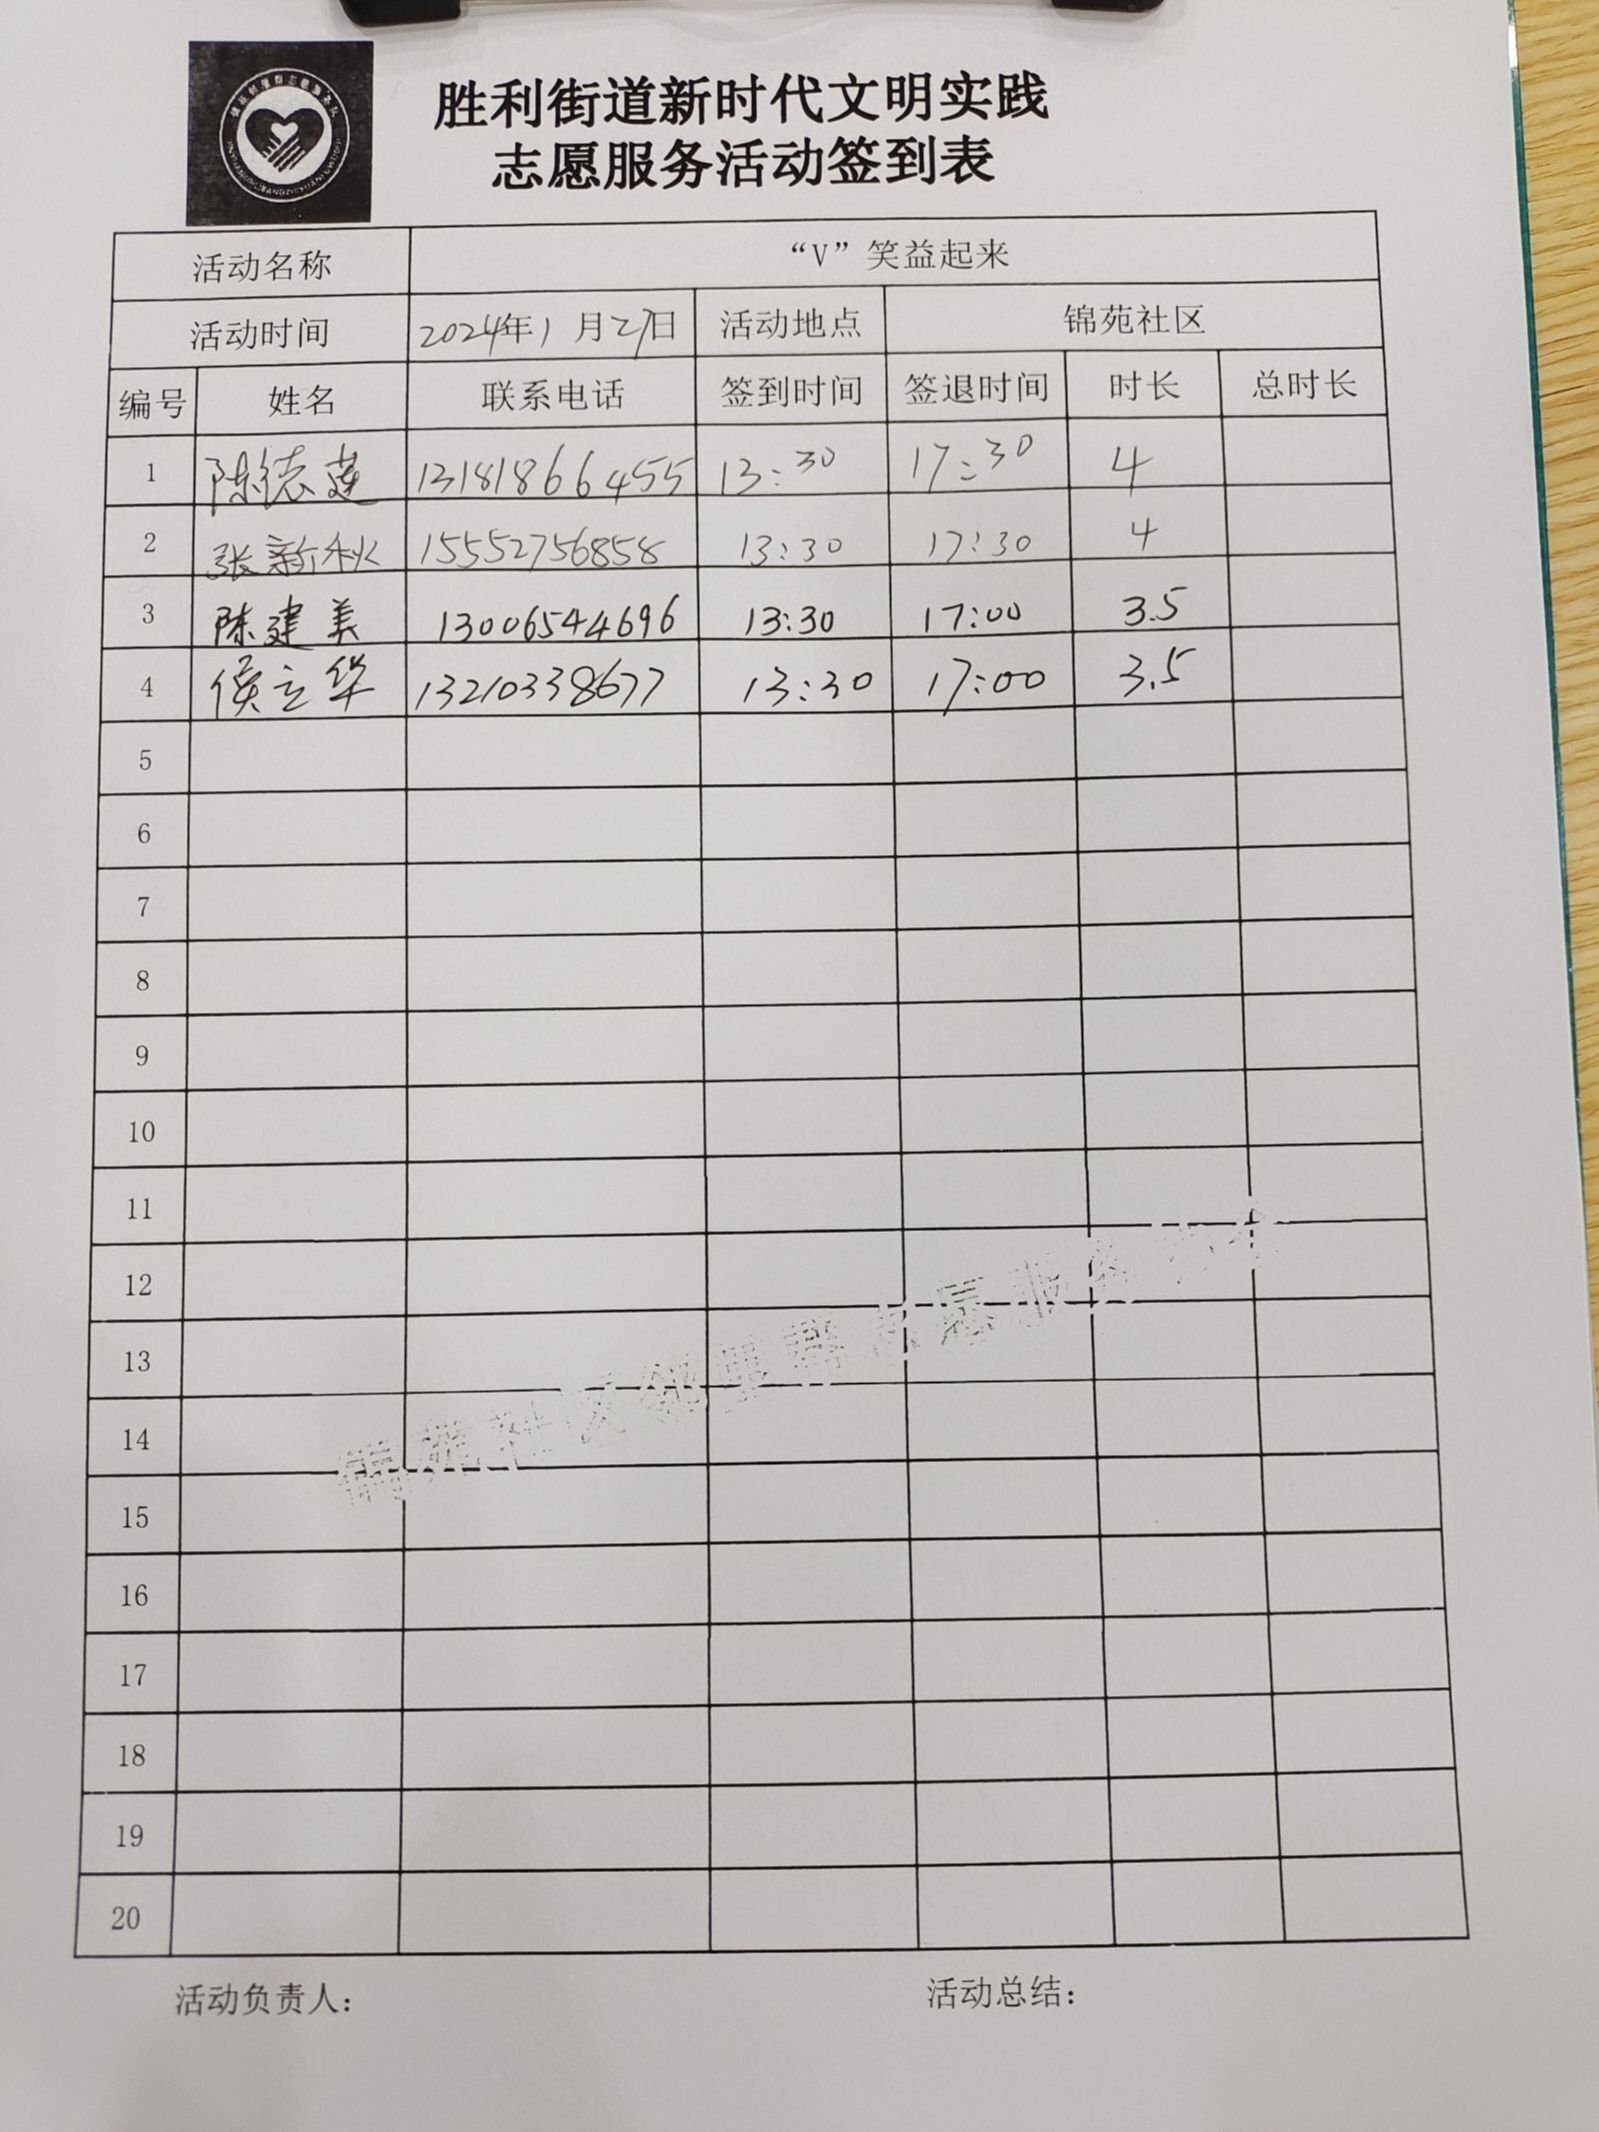 胜利街道新时代文明实践
志愿服务活动签到表
活动名称 “V”笑益起来
活动时间 2024年1月27日 活动地点 锦苑社区
编号 姓名 联系电话 签到时间 签退时间 时长 总时长
1 陈德莲 13181866455 13:30 17:30 4
2 张新秋 15552756858 13:30 17:30 4
3 陈建美 13006544696 13:30 17:00 3.5
4 侯立华 13210338677 13:30 17:00 3.5
5
6
7
8
9
10
11
12
13
14
15
16
17
18
19
20
锦苑社区邻里帮志愿服务
活动负责人： 活动总结：